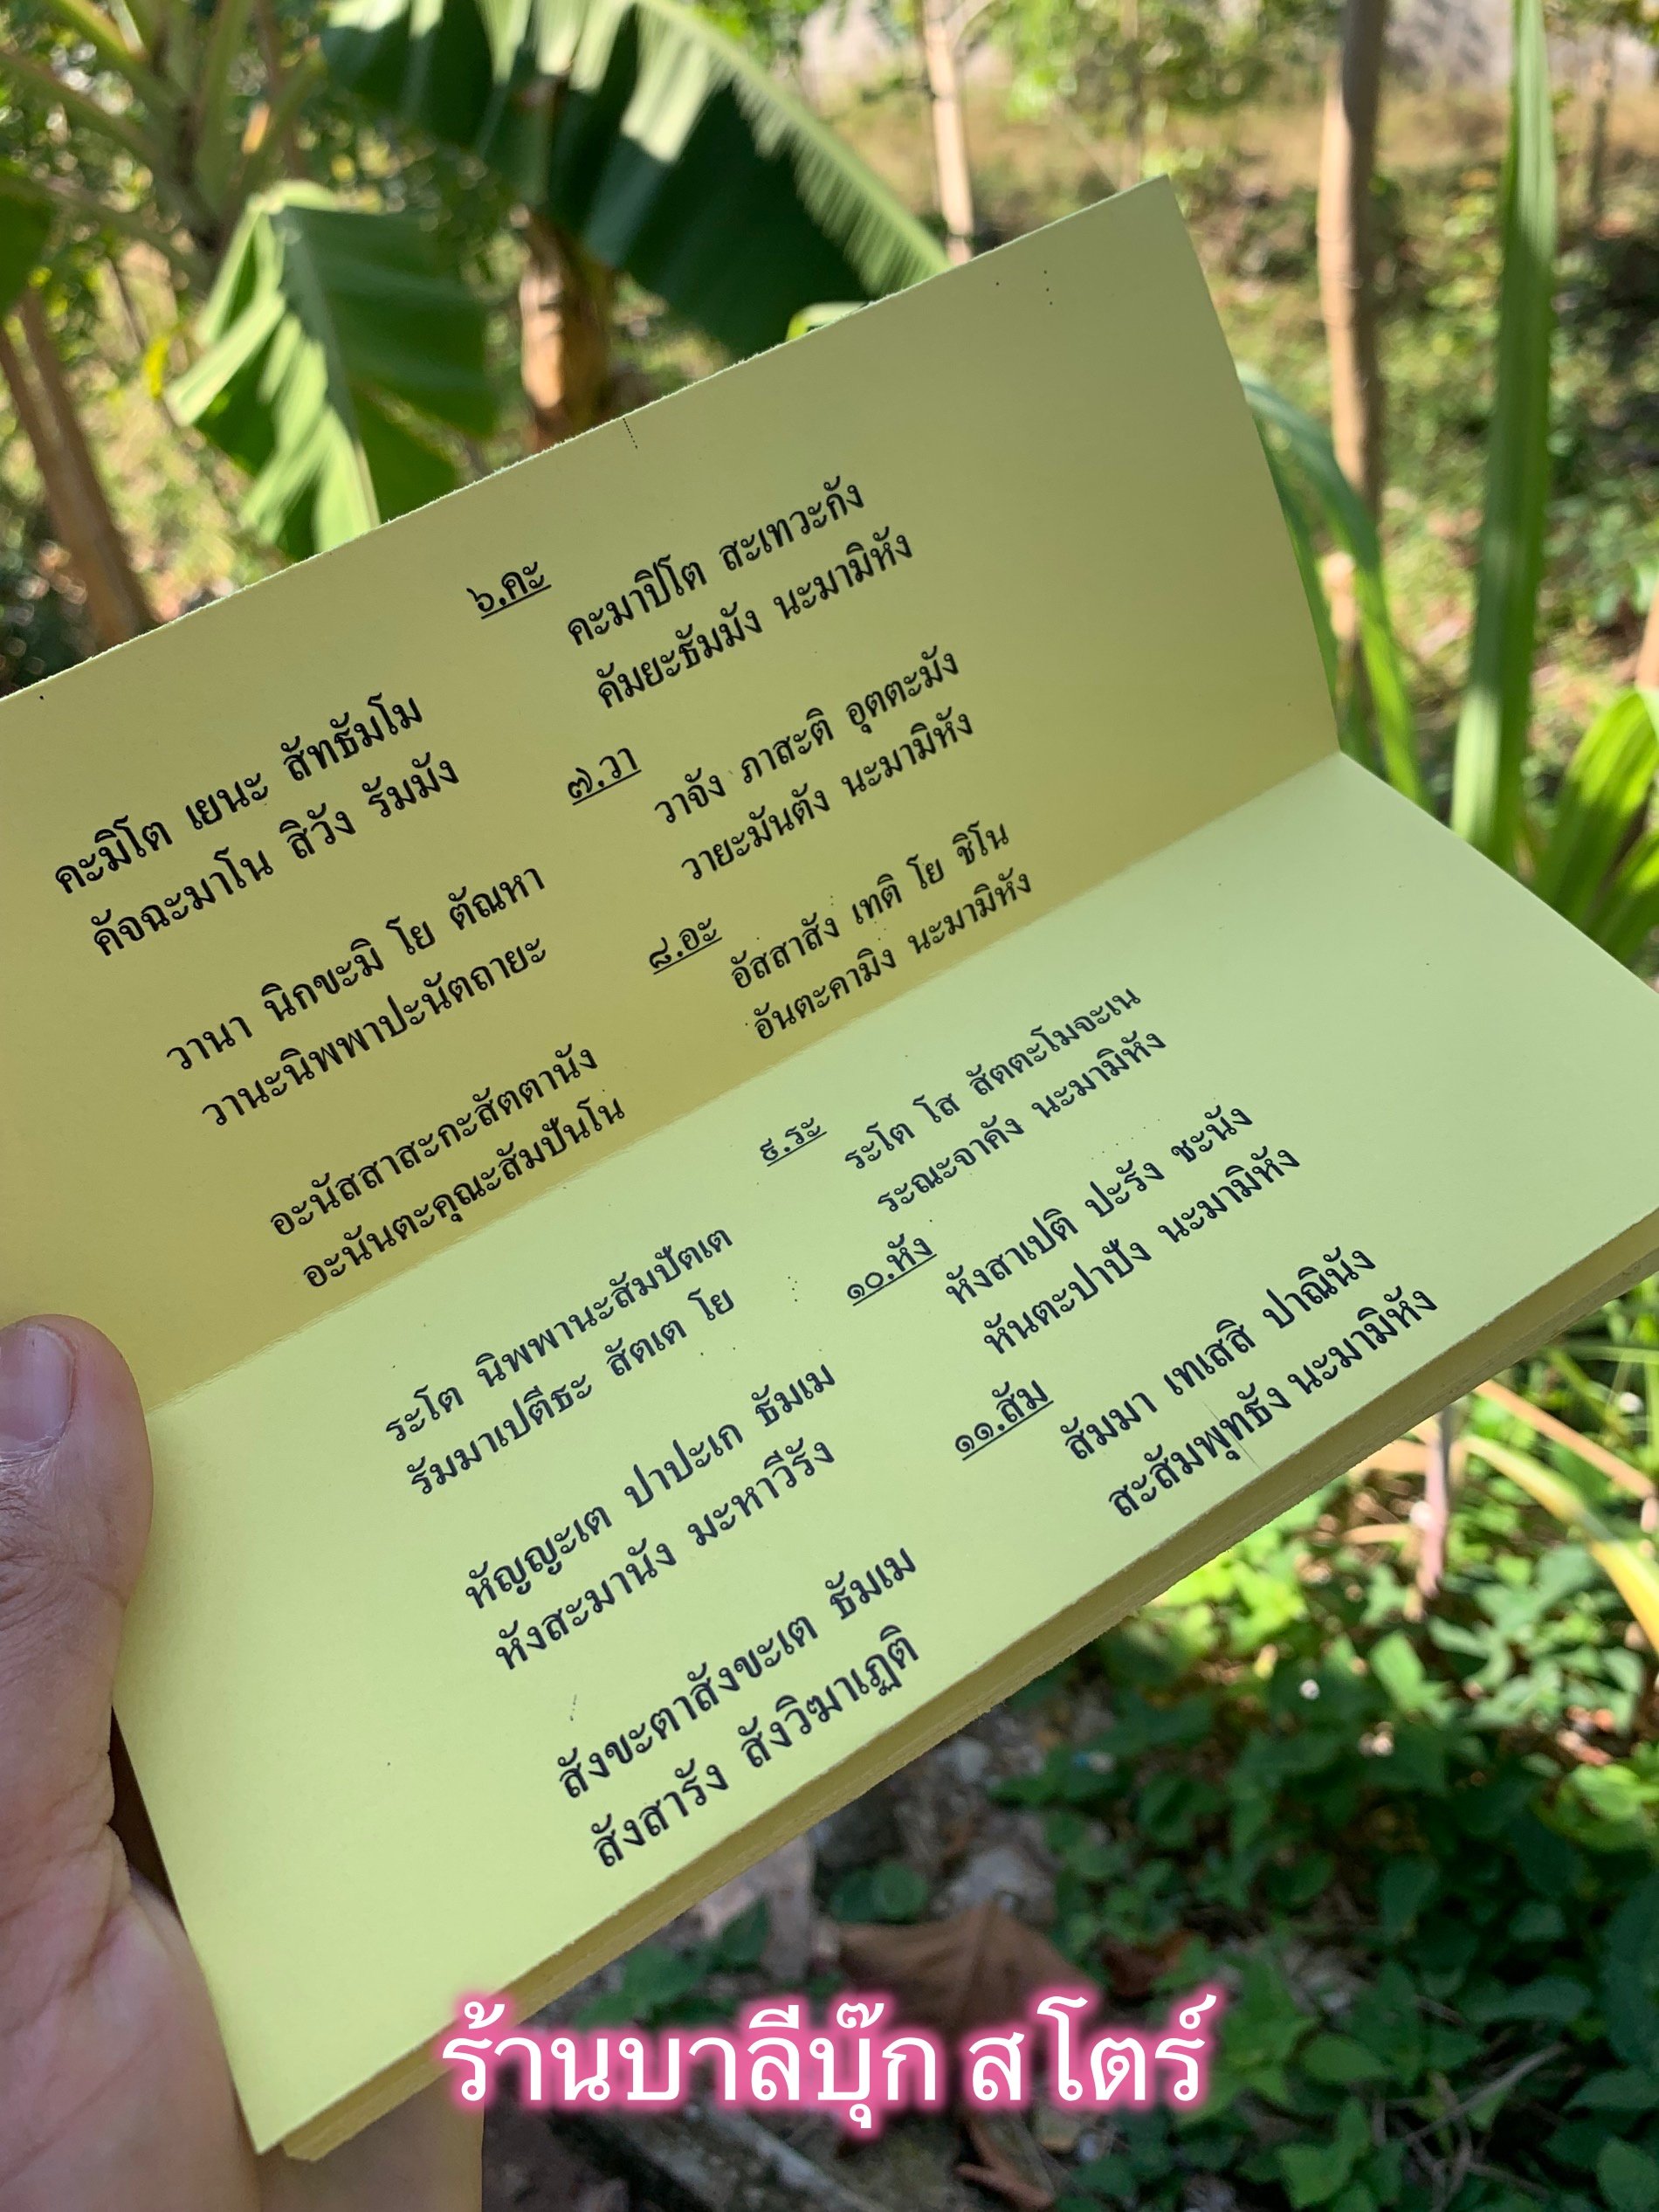 ๖.คะ
คะมิโต เยนะ สัทธัมโม คะมาปิโต สะเทวะกัง
คัจฉะมาโน สิวัง รัมมัง คัมยะธัมมัง นะมามิหัง
๗.วา
วานา นิกขะมิ โย ตัณหา วาจัง ภาสะติ อุตตะมัง
วานะนิพพาปะนัตถายะ วายะมันตัง นะมามิหัง
๘.อะ
อะนัสสาสะกะสัตตานัง อัสสาสัง เทติ โย ชิโน
อะนันตะคุณะสัมปันโน อันตะคามิง นะมามิหัง
๙.ระ
ระโต นิพพานะสัมปัตเต ระโต โส สัตตะโมจะเน
รัมมาเปตีธะ สัตเต โย ระณะจาคัง นะมามิหัง
๑๐.หัง
หัญญะเต ปาปะเก ธัมเม หังสาเปติ ปะรัง ชะนัง
หังสะมานัง มะหาวีรัง หันตะปาปัง นะมามิหัง
๑๑.สัม
สังขะตาสังขะเต ธัมเม สัมมา เทเสสิ ปาณินัง
สังสารัง สังวิฆาเฏติ สะสัมพุทธัง นะมามิหัง
ร้านบาลีบุ๊ก สโตร์